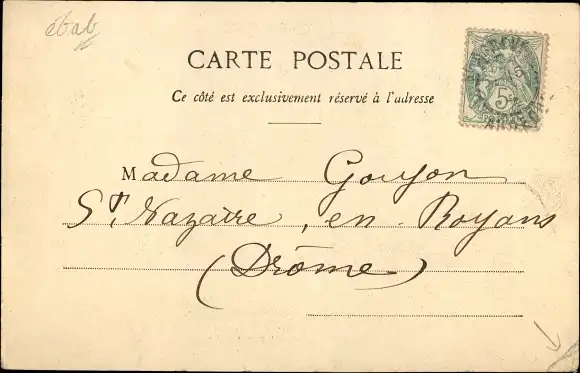 CARTE POSTALE
Ce côté est exclusivement réservé à l'adresse
Madame Gouyon
St. Nazaire, en Royans
(Drôme)
5